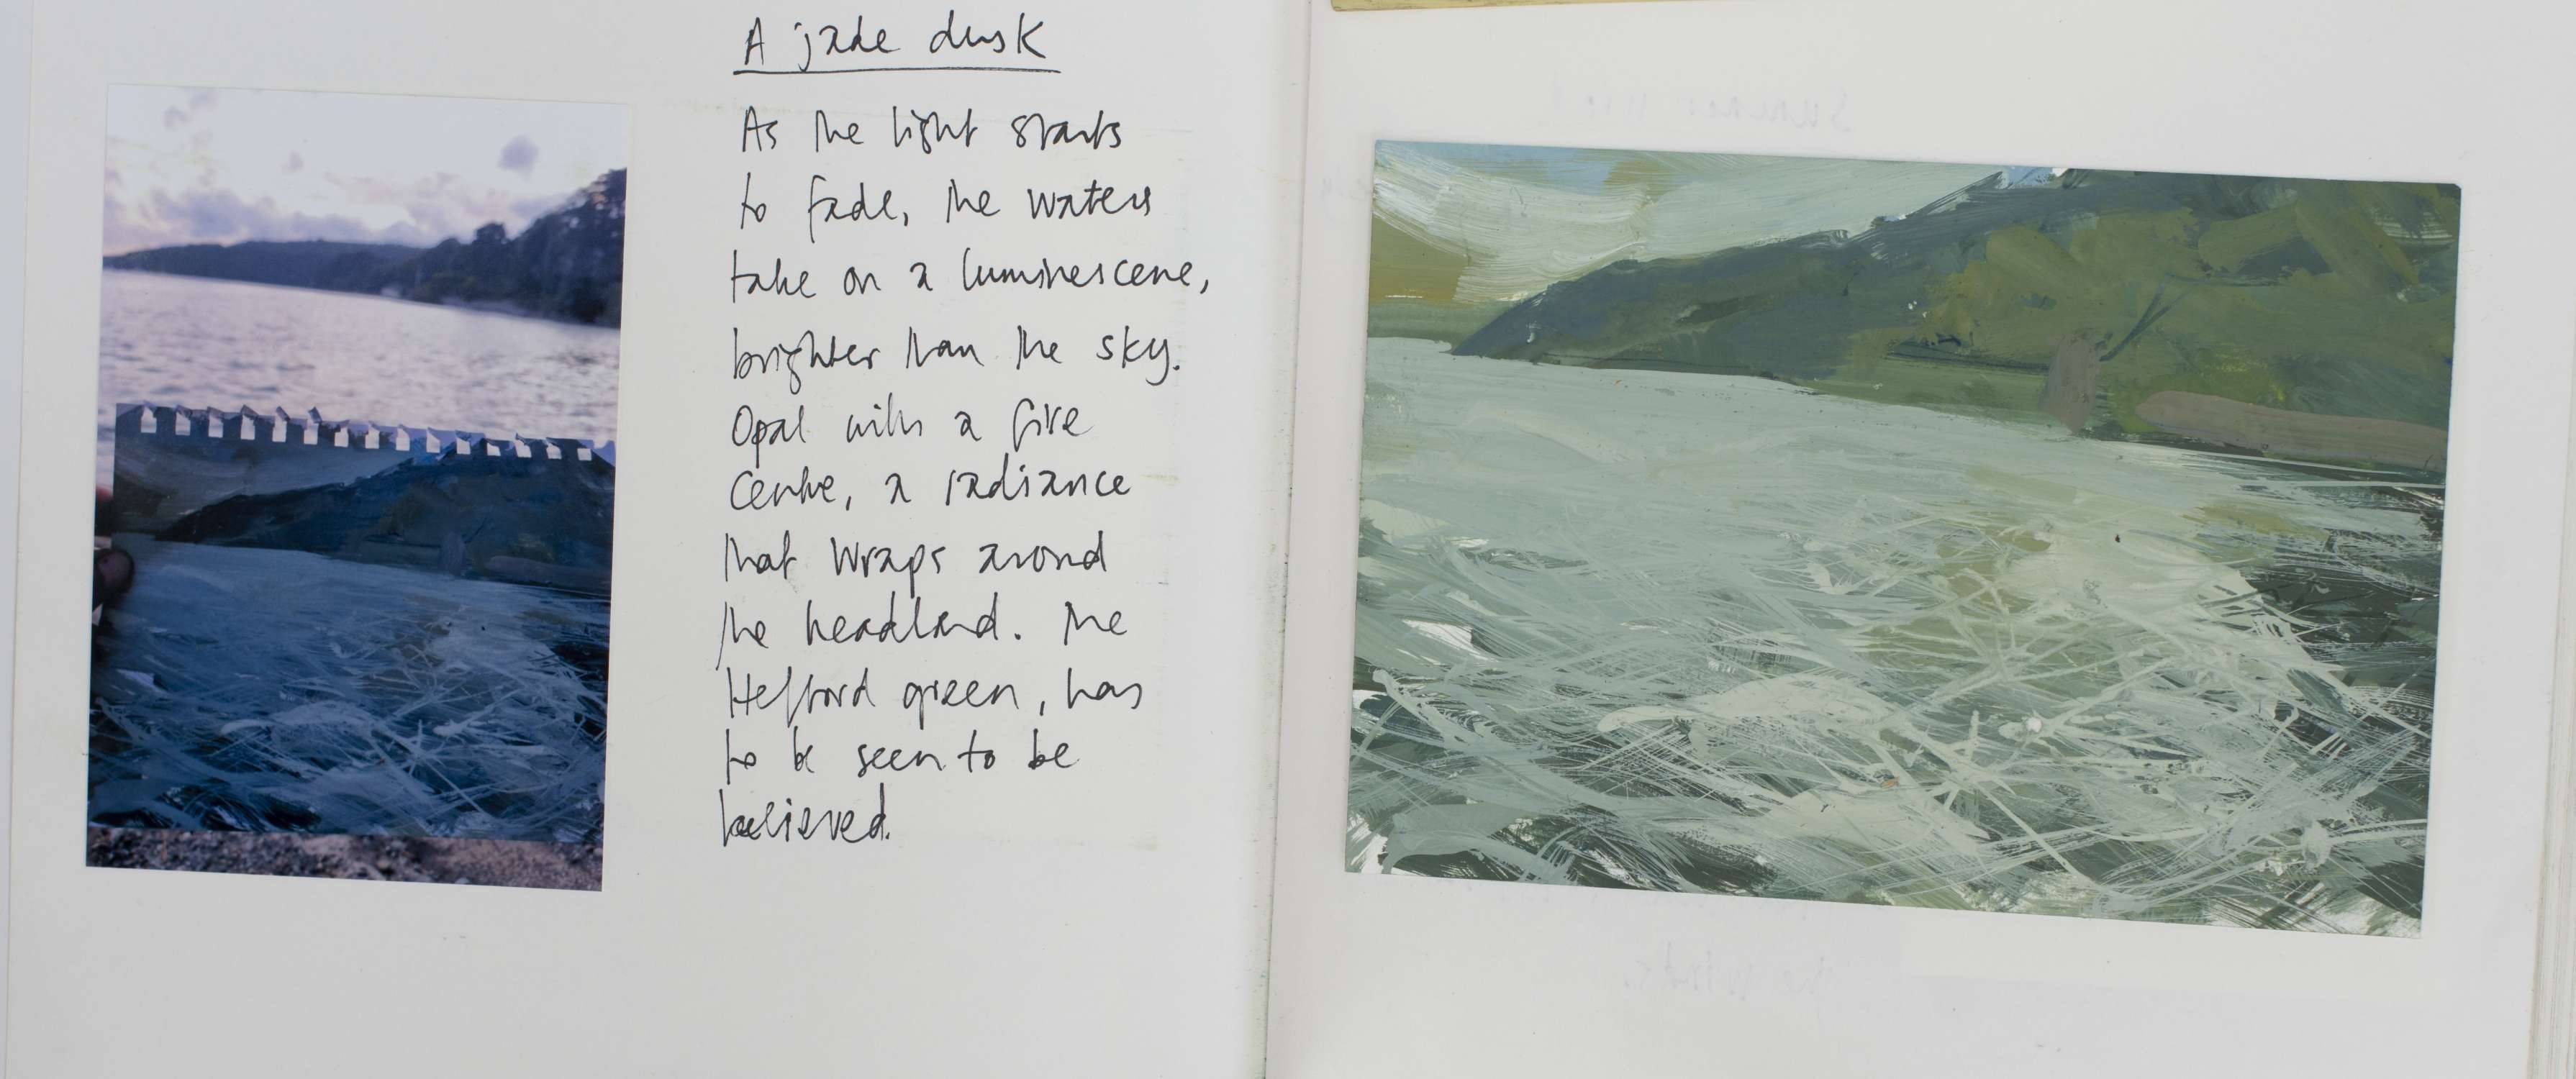 A jade dusk
As the light starts
to fade, the waters
take on a luminescene,
brighter than the sky.
Opal with a fire
centre, a radiance
that wraps around
the headland. The
Helford green, has
to be seen to be
believed.